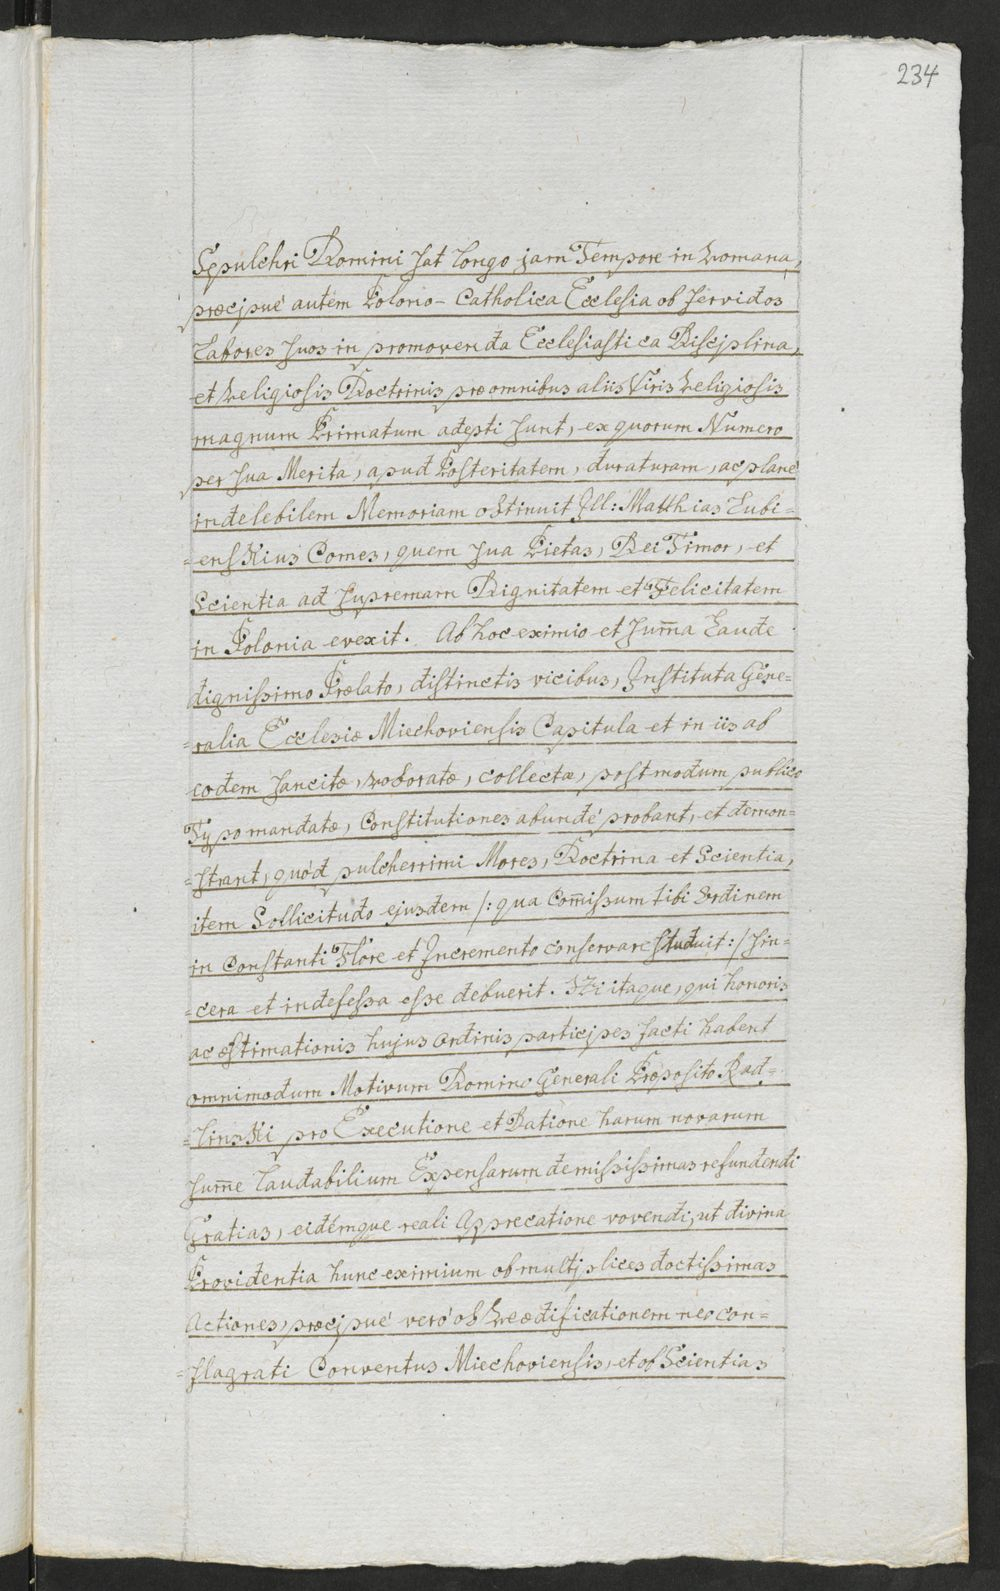 234
Sepulchri Domini sat longo jam Tempore in Romana,
præcipuè autem Polono-Catholica Ecclesia ob fervidos
Labores suos in promovenda Ecclesiastica Disciplina,
et Religiosis Doctrinis præ omnibus aliis Viris Religiosis
magnum Primatum adepti sunt, ex quorum Numero
per sua Merita, apud Posteritatem, duraturam, ac planè
indelebilem Memoriam obtinuit Ill: Matthias Lubi=
=enskius Comes, quem sua Pietas, Dei Timor, et
Scientia ad supremam Dignitatem et Felicitatem
in Polonia evexit. Ab hoc eximio et sum̄a Laude
dignissimo Prælato, distinctis vicibus, Instituta Gene=
=ralia Ecclesiæ Miechoviensis Capitula et in iis ab
eodem sancitæ, roboratæ, collectæ, postmodum publico
Typo mandatæ, Constitutiones abundè probant, et demon=
=strant, quòd pulcherrimi Mores, Doctrina et Scientia,
item Sollicitudo ejusdem /: qua Com̄issum tibi Ordinem
in Constanti Flore et Incremento conservare studuit :/ sin=
=cera et indefessa esse debuerit. Hi itaque, qui honoris
ac æstimationis hujus Ordinis participes facti habent
omnimodum Motivum Domino Generali Præposito Rad=
=linski pro Executione et Ratione harum novarum
sum̄e laudabilium Expensarum demississimas refundendi
Gratias, eidémque reali Apprecatione vovendi, ut divina
Providentia hunc eximium ob multiplices doctissimas
Actiones, præcipuè verò ob Reædificationem neo con=
=flagrati Conventus Miechoviensis, et ob Scientias